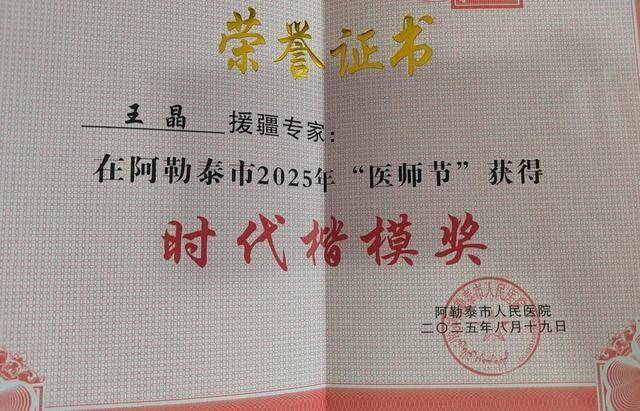 荣誉证书
王晶 援疆专家：
在阿勒泰市2025年“医师节”获得
时代楷模奖
阿勒泰市人民医院
二〇二五年八月十九日